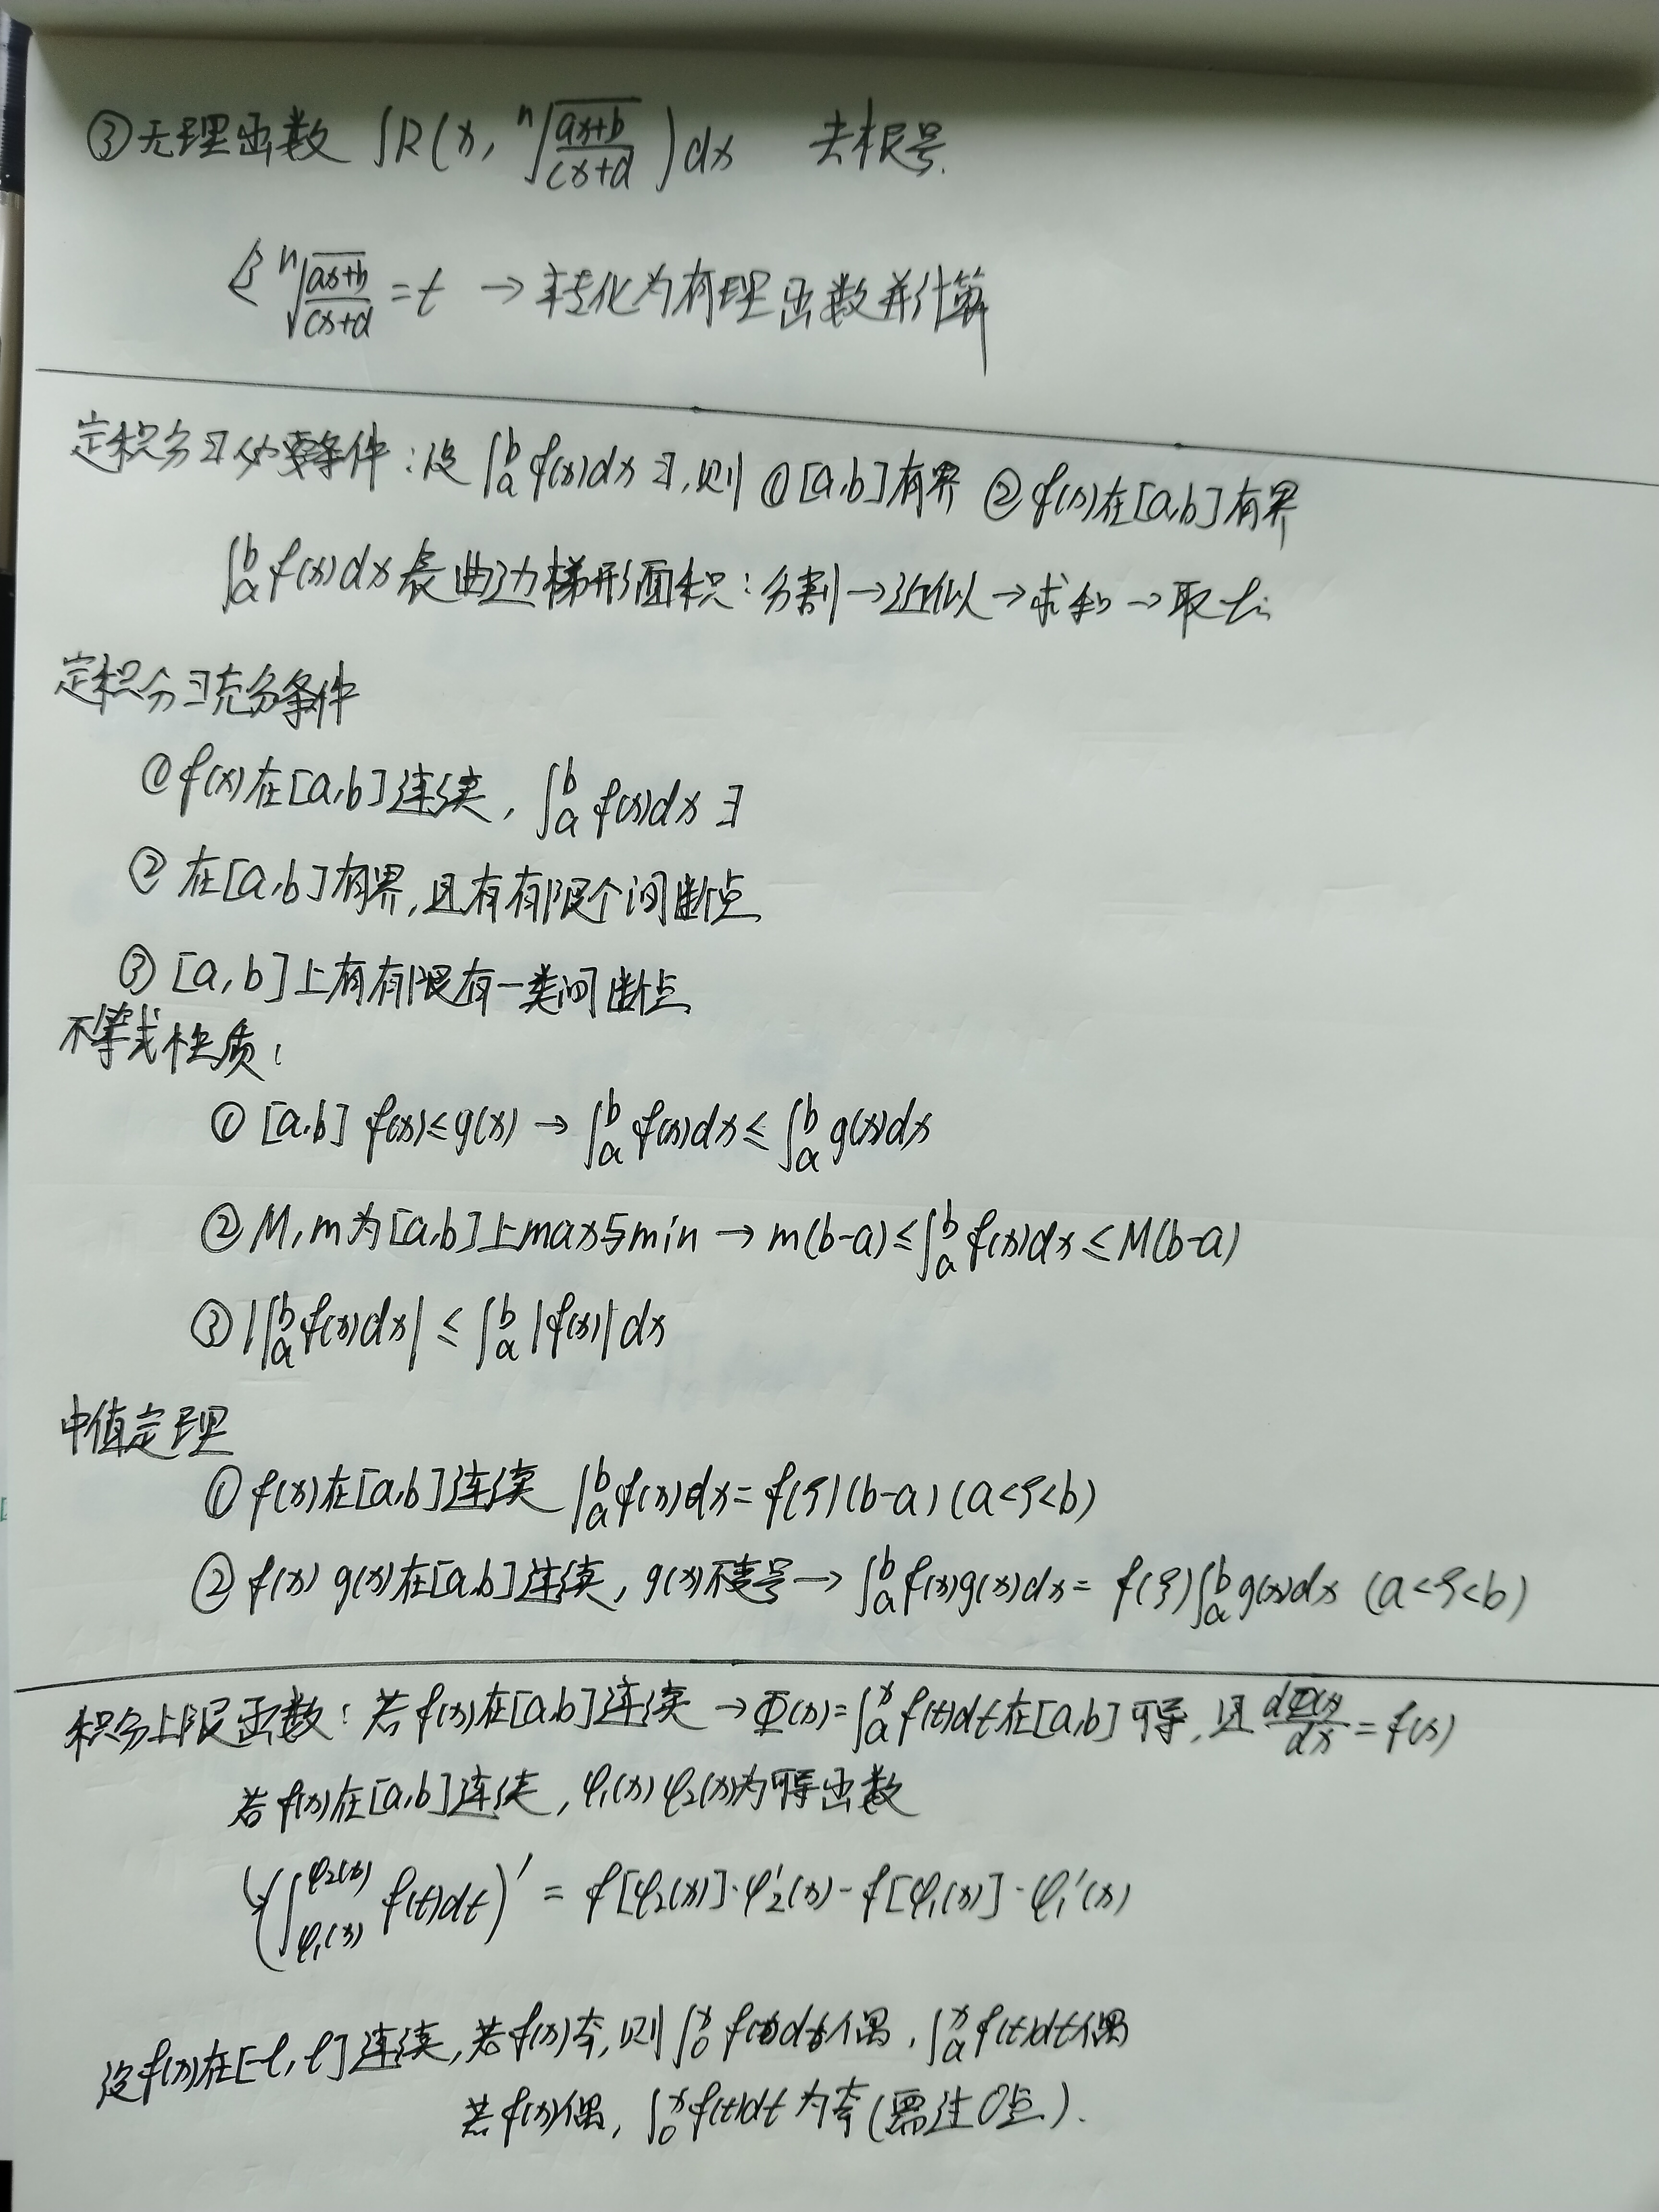 ③无理函数 ∫R(x, ⁿ√((ax+b)/(cx+d)))dx 去根号.
令 ⁿ√((ax+b)/(cx+d)) = t → 转化为有理函数并计算
定积分∃必要条件:设 ∫ₐᵇ f(x)dx ∃,则 ①[a,b]有界 ②f(x)在[a,b]有界
∫ₐᵇ f(x)dx 表曲边梯形面积:分割→近似→求和→取
定积分∃充分条件
① f(x)在[a,b]连续, ∫ₐᵇ f(x)dx ∃
② 在[a,b]有界,且有有限个间断点
③ [a,b]上有有限有一类间断点
不等式性质:
① [a,b] f(x)≤g(x) → ∫ₐᵇ f(x)dx ≤ ∫ₐᵇ g(x)dx
② M,m为[a,b]上max与min → m(b-a) ≤ ∫ₐᵇ f(x)dx ≤ M(b-a)
③ |∫ₐᵇ f(x)dx| ≤ ∫ₐᵇ |f(x)|dx
中值定理
① f(x)在[a,b]连续 ∫ₐᵇ f(x)dx = f(ξ)(b-a) (a<ξ<b)
② f(x) g(x)在[a,b]连续, g(x)不变号 → ∫ₐᵇ f(x)g(x)dx = f(ξ)∫ₐᵇ g(x)dx (a<ξ<b)
积分上限函数:若f(x)在[a,b]连续 → Φ(x)=∫ₐˣ f(t)dt在[a,b]可导,且 dΦ(x)/dx = f(x)
若f(x)在[a,b]连续, φ₁(x) φ₂(x)为可导函数
(∫_{φ₁(x)}^{φ₂(x)} f(t)dt)′ = f[φ₂(x)]·φ₂′(x) - f[φ₁(x)]·φ₁′(x)
设f(x)在[-l, l]连续,若f(x)奇,则 ∫₀ˣ f(t)dt偶, ∫ₐˣ f(t)dt偶
若f(x)偶, ∫₀ˣ f(t)dt 为奇(需过0点).